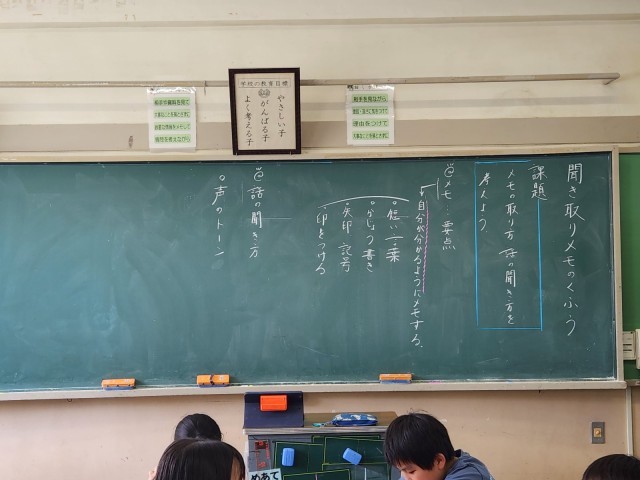 学校の教育目標
やさしい子
がんばる子
よく考える子
聞き取りメモのくふう
課題
メモの取り方 話の聞き方を
考えよう。
@メモ…要点
自分が分かるようにメモする。
短い言葉
かじょう書き
矢印 記号
印をつける
@話の聞き方
声のトーン
理由をつけて
めあて